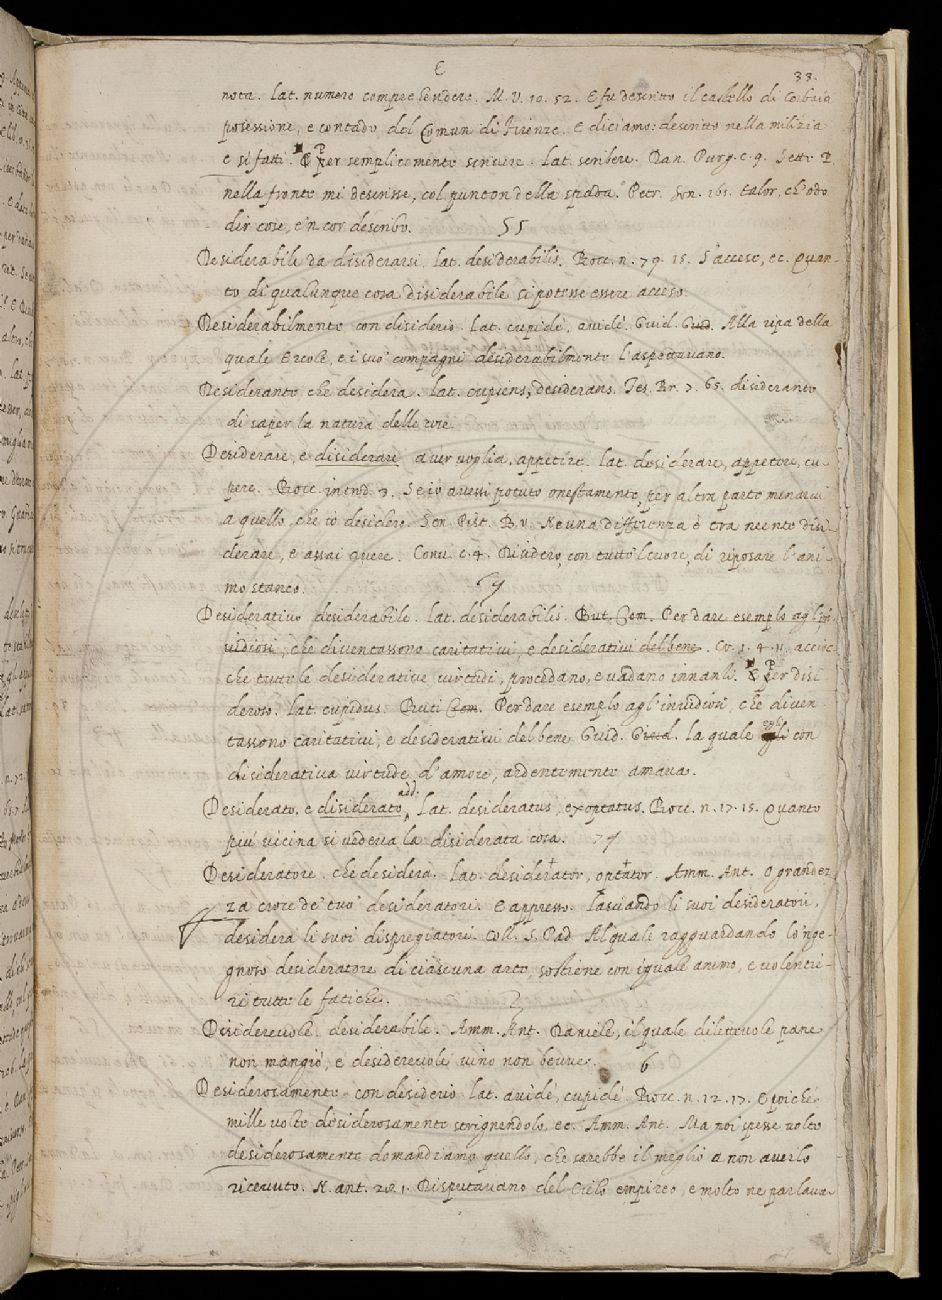 E
33.
nota. Lat. numero comprehendere. M. V. 10. 52. E fu descritto il castello di Corbaia
posessione, e contado, del Comun di Firenze. E diciamo: descritto nella milizia
e si fatti. ¶ Per semplicemente scrivere. Lat. scribere. Dan. Purg. c. 9. Sette P.
nella fronte mi descrisse, col punton della spada. Petr. Son. 265. talor, ch'odo
dir cose, e'n cor describo. 55
Desiderabile da disiderarsi. Lat. desiderabilis. Bocc. n. 79. 15. S'accese, ec. Quan-
to di qualunque cosa disiderabile si potesse essere acceso.
Desiderabilmente con disiderio. Lat. cupidè, avidè. Guid. Guid. Alla ripa della
quale Ercole, e i suoi compagni desiderabilmente l'aspettavano.
Desiderante che desidera. Lat. cupiens, desiderans. Tes. Br. 7. 65. disiderante
di saper la natura delle
Desiderare, e disiderare aver voglia, appetire. Lat. desiderare, appetere, cu-
pere. Bocc. introd. 3. Se io avessi potuto onestamente, per altra parte menarvi
a quello, che io desidero. Sen. Pist. B. V. Neuna differenza è tra niente disi-
derare, e assai avere. Conv. c. 4. Disidero, con tutto 'l cuore, di riposare l'ani-
mo stanco.
Desiderativo desiderabile. Lat. desiderabilis. But. Com. Per dare esemplo agl'in-
vidiosi, che diventassono caritativi, e desiderativi del bene. Cr. 1. 4. 11. acciò
che tutte le desiderative virtudi, procedano, e vadano innanzi. ¶ Per disi-
deroso. Lat. cupidus. Buti Com. Per dare esemplo agl'invidiosi, che diven
tassono caritativi, e desiderativi del bene Guid. Guid. la quale con
disiderativa virtude d'amore, ardentemente amava.
Desiderato. e disiderato add. Lat. desideratus, exoptatus. Bocc. n. 17. 15. Quanto
più vicina si vedeva la disiderata cosa.
Desideratore. che desidera. Lat. desiderator, optator. Amm. Ant. O grandez
za croce de' tuoi desideratori. E appresso. Lasciando li suoi desideratori,
desidera li suoi dispregiatori. Coll. S. Pad. Al quale ragguardando lo'nge-
gnoso desideratore di ciascuna arte, sostiene con iguale animo, e volentie-
ri tutte le fatiche.
Disiderevole. desiderabile. Amm. Ant. Daniele, il quale dilettevole pane
non mangiò, e desiderevole vino non bevve. 6
Desiderosamente con desiderio Lat. avidè, cupidè. Bocc. n. 12. 17. E poiché
mille volte disiderosamente strignendolo, ec. Amm. Ant. Ma noi spesse volte
desiderosamente domandiamo quello, che sarebbe il meglio a non averlo
ricevuto. N. ant. 28. 1. Disputavano del Cielo empireo, e molto ne parlava-